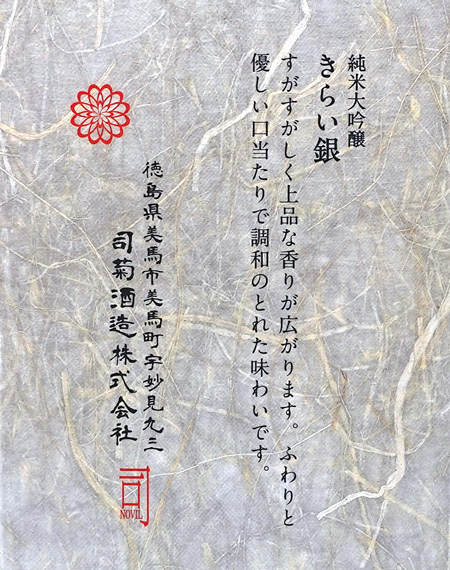 純米大吟醸
きらい銀
すがすがしく上品な香りが広がります。ふわりと
優しい口当たりで調和のとれた味わいです。
徳島県美馬市美馬町字妙見九三
司菊酒造株式会社
司
NOVIL